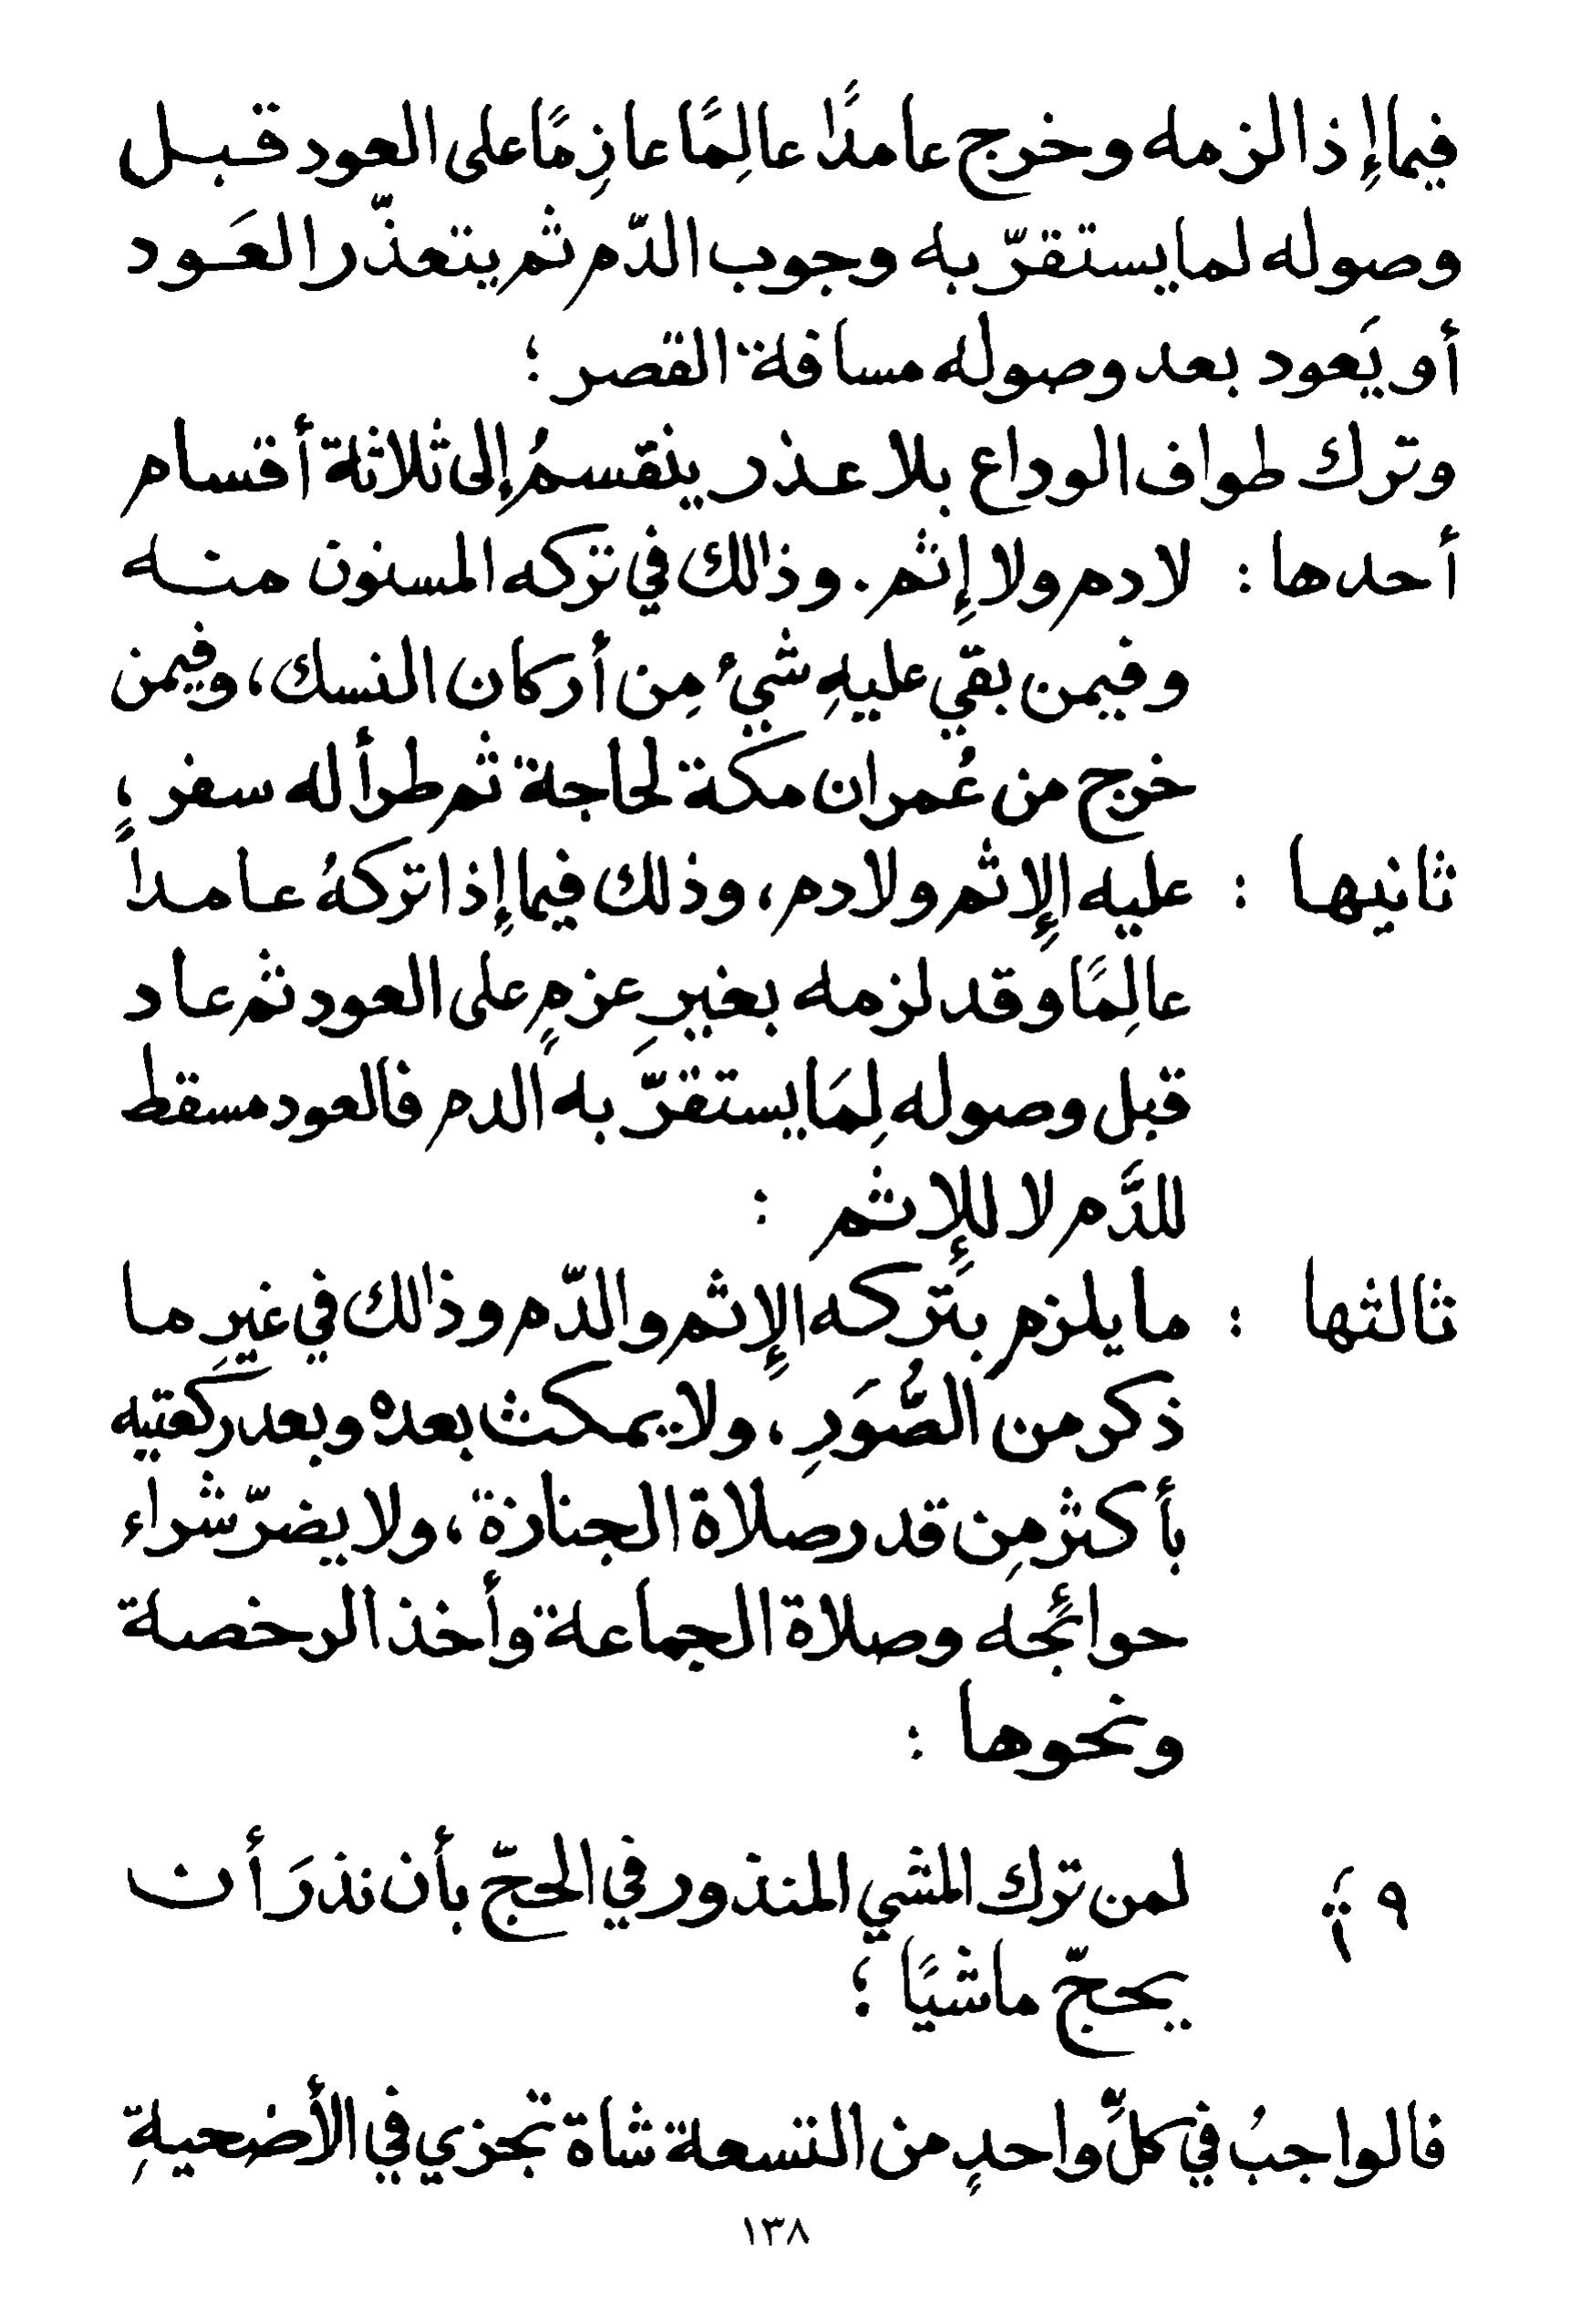 فيما إِذا لزمه وخرج عامدًا عالِمًا عازِمًا على العود قبل
وصوله لما يستقرّ به وجوب الدّم ثم يتعذّر العَود
أو يَعود بعد وصوله مسافة القصر ؛
وترك طواف الوداع بلا عذر ينقسمُ إِلى ثلاثة أقسام
أحدها : لا دم ولا إِثم . وذالك في تركه المسنون منه
وفيمن بقي عليهِ شيءٌ مِن أركان النسك ، وفيمن
خرج من عُمران مكة لحاجة ثم طرأ له سفر ؛
ثانيها : عليه الإِثم ولا دم ، وذلك فيما إِذا تركهُ عامداً
عالِمًا وقد لزمه بغيرِ عزمٍ على العود ثم عاد
قبل وصوله لِمَا يستقرّ به الدم فالعود مسقط
للدَّم لا للإِثم :
ثالثها : ما يلزم بِتَركه الإِثم والدّم وذالك في غيرِ ما
ذكر من الصُّوَرِ ، ولا يمكث بعده وبعد ركعتيه
بأكثر مِن قدر صلاة الجنازة ، ولا يضرّ شراء
حوائجه وصلاة الجماعة وأخذ الرخصة
ونحوها :
٩ لمن ترك المشي المنذور في الحجّ بأن نذرَ أن
يحجّ ماشيًا ؛
فالواجبُ في كلِّ واحدٍ من التسعة شاة تجزي في الأضحيةِ
١٣٨